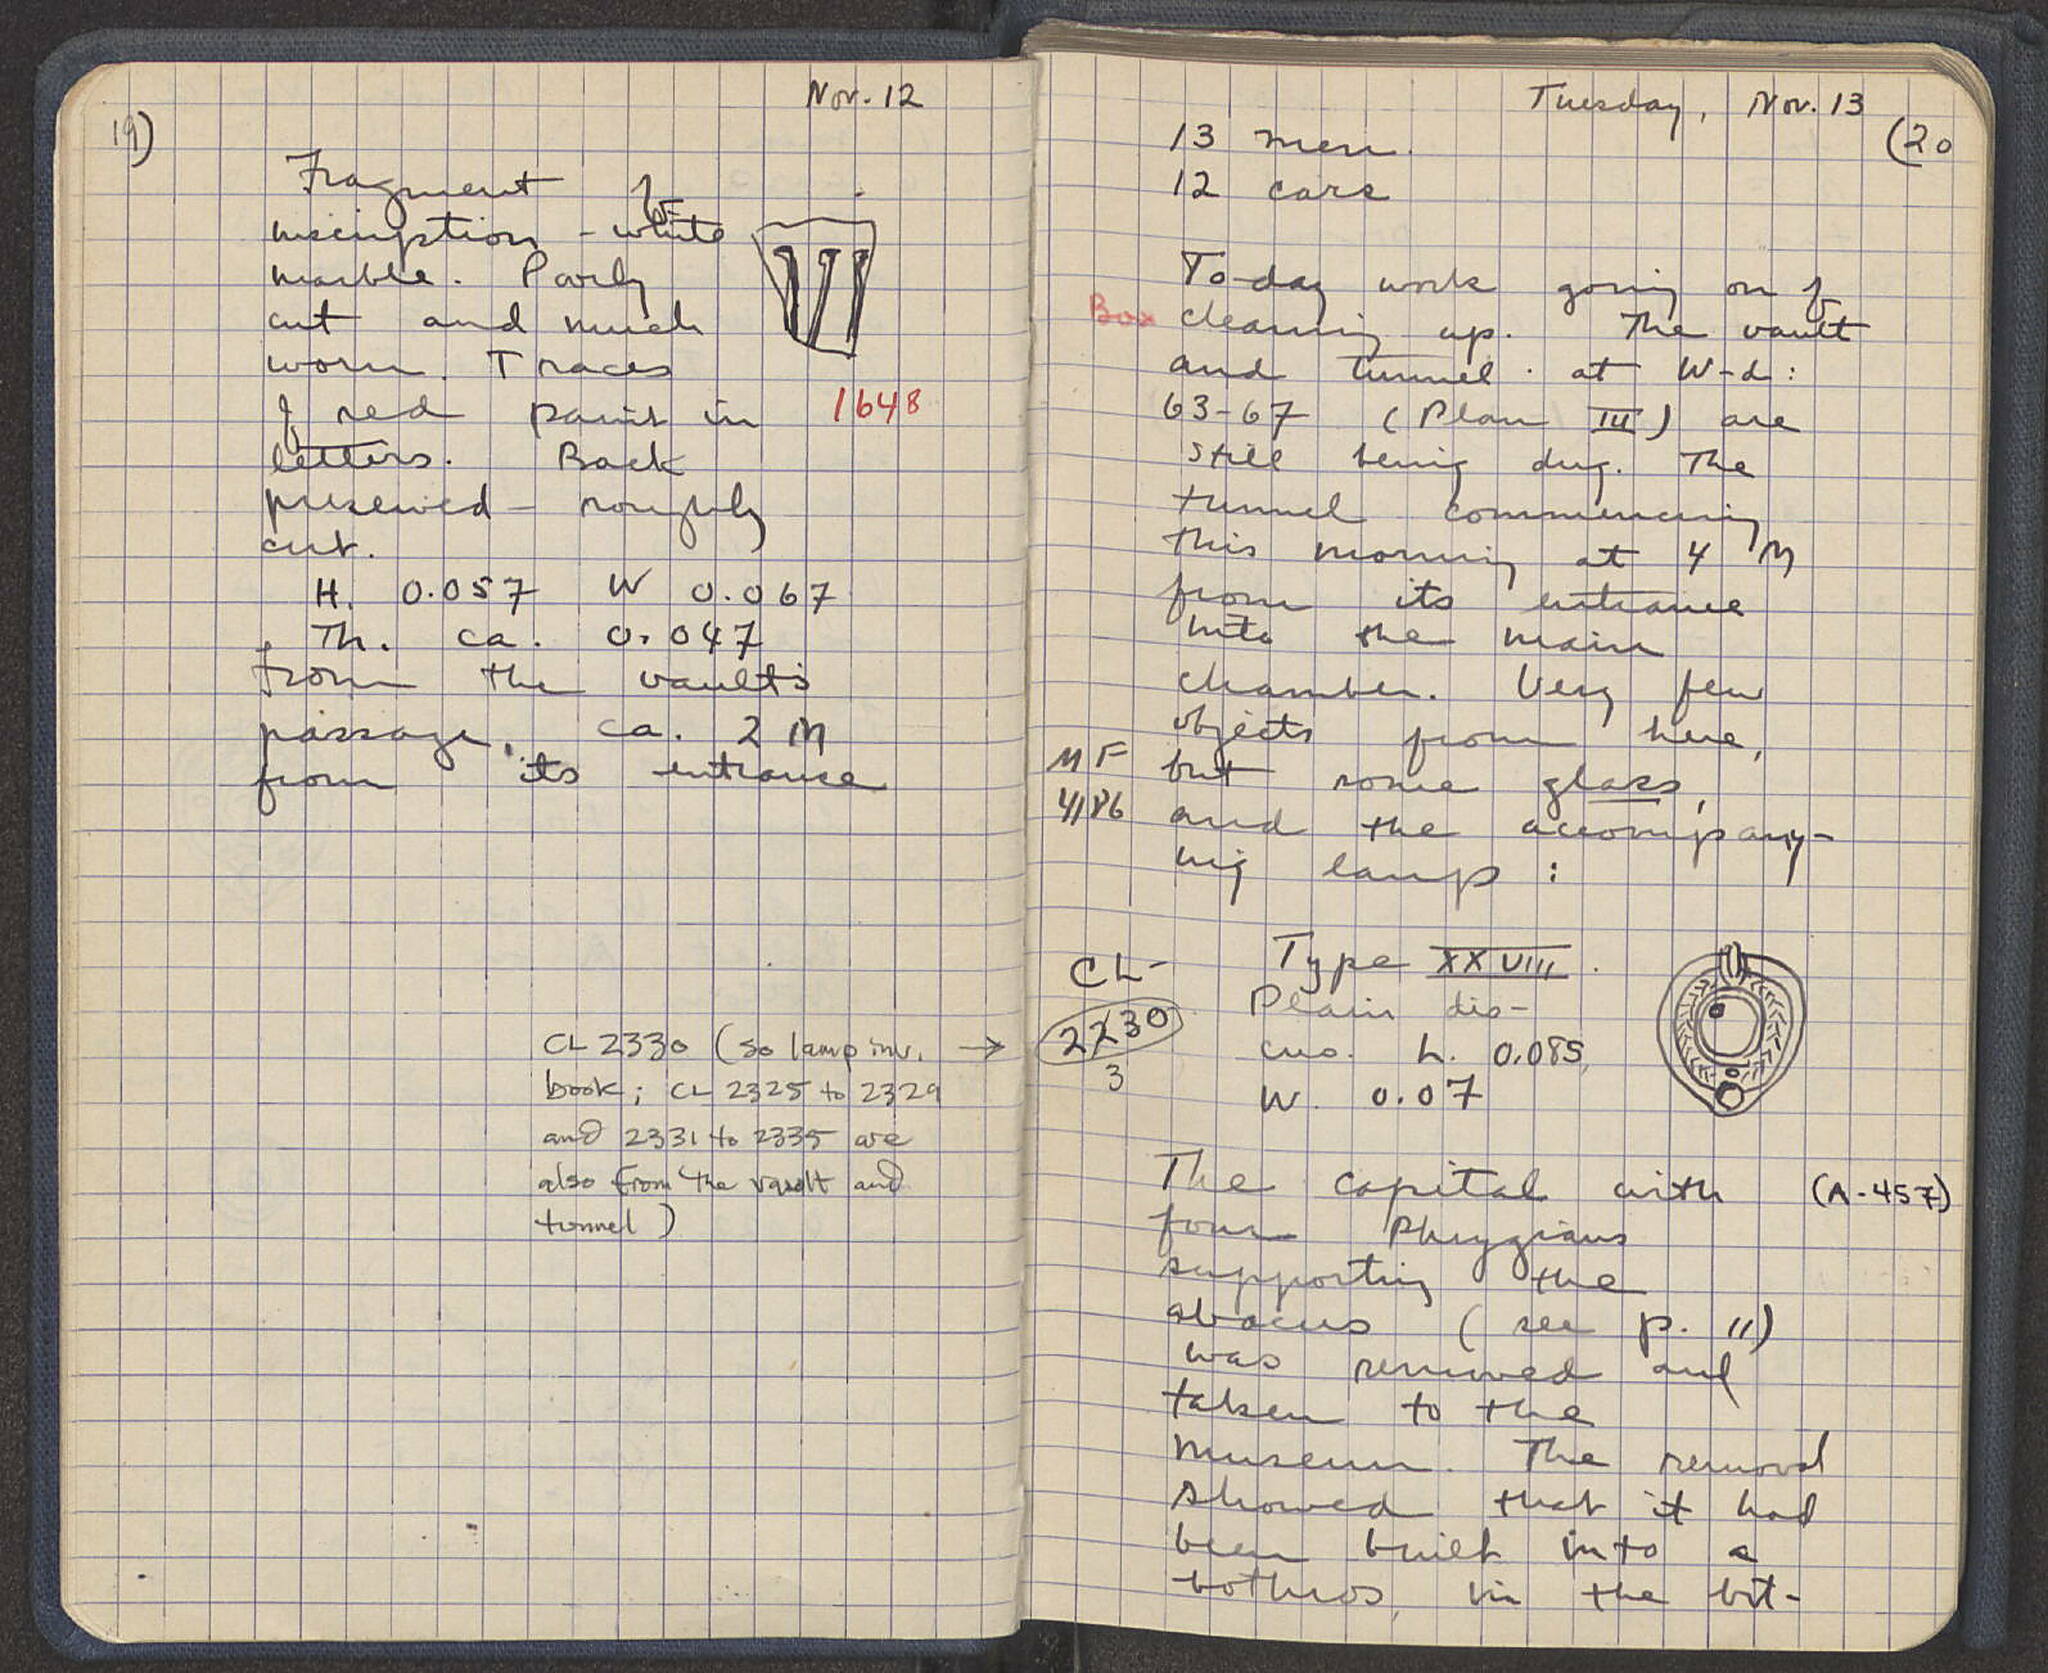 19)
Nov. 12
Fragment of
inscription - white
marble. Poorly
cut and much
worn. Traces
of red paint in
letters. Back
preserved - roughly
cut.
1648
H. 0.057 W 0.067
Th. ca. 0.047
from the vault's
passage, ca. 2 M
from its entrance
CL 2330 (so lamp inv. →
book; CL 2325 to 2329
and 2331 to 2335 are
also from the vault and
tunnel)
Tuesday, Nov. 13
(20
13 men.
12 cars
To-day work going on of
Box
cleaning up. The vault
and tunnel at W-d:
63-67 (Plan III) are
still being dug. The
tunnel commencing
this morning at 4 M
from its entrance
into the main
chamber. Very few
objects from here,
MF
4186
but some glass,
and the accompany-
ing lamp:
CL-
2230
3
Type XXVIII.
Plain dis-
cus. L. 0.085,
W. 0.07
The capital with (A-457)
four Phrygians
supporting the
abacus (see p. 11)
was removed and
taken to the
museum. The removal
showed that it had
been built into a
bothros, in the bot-